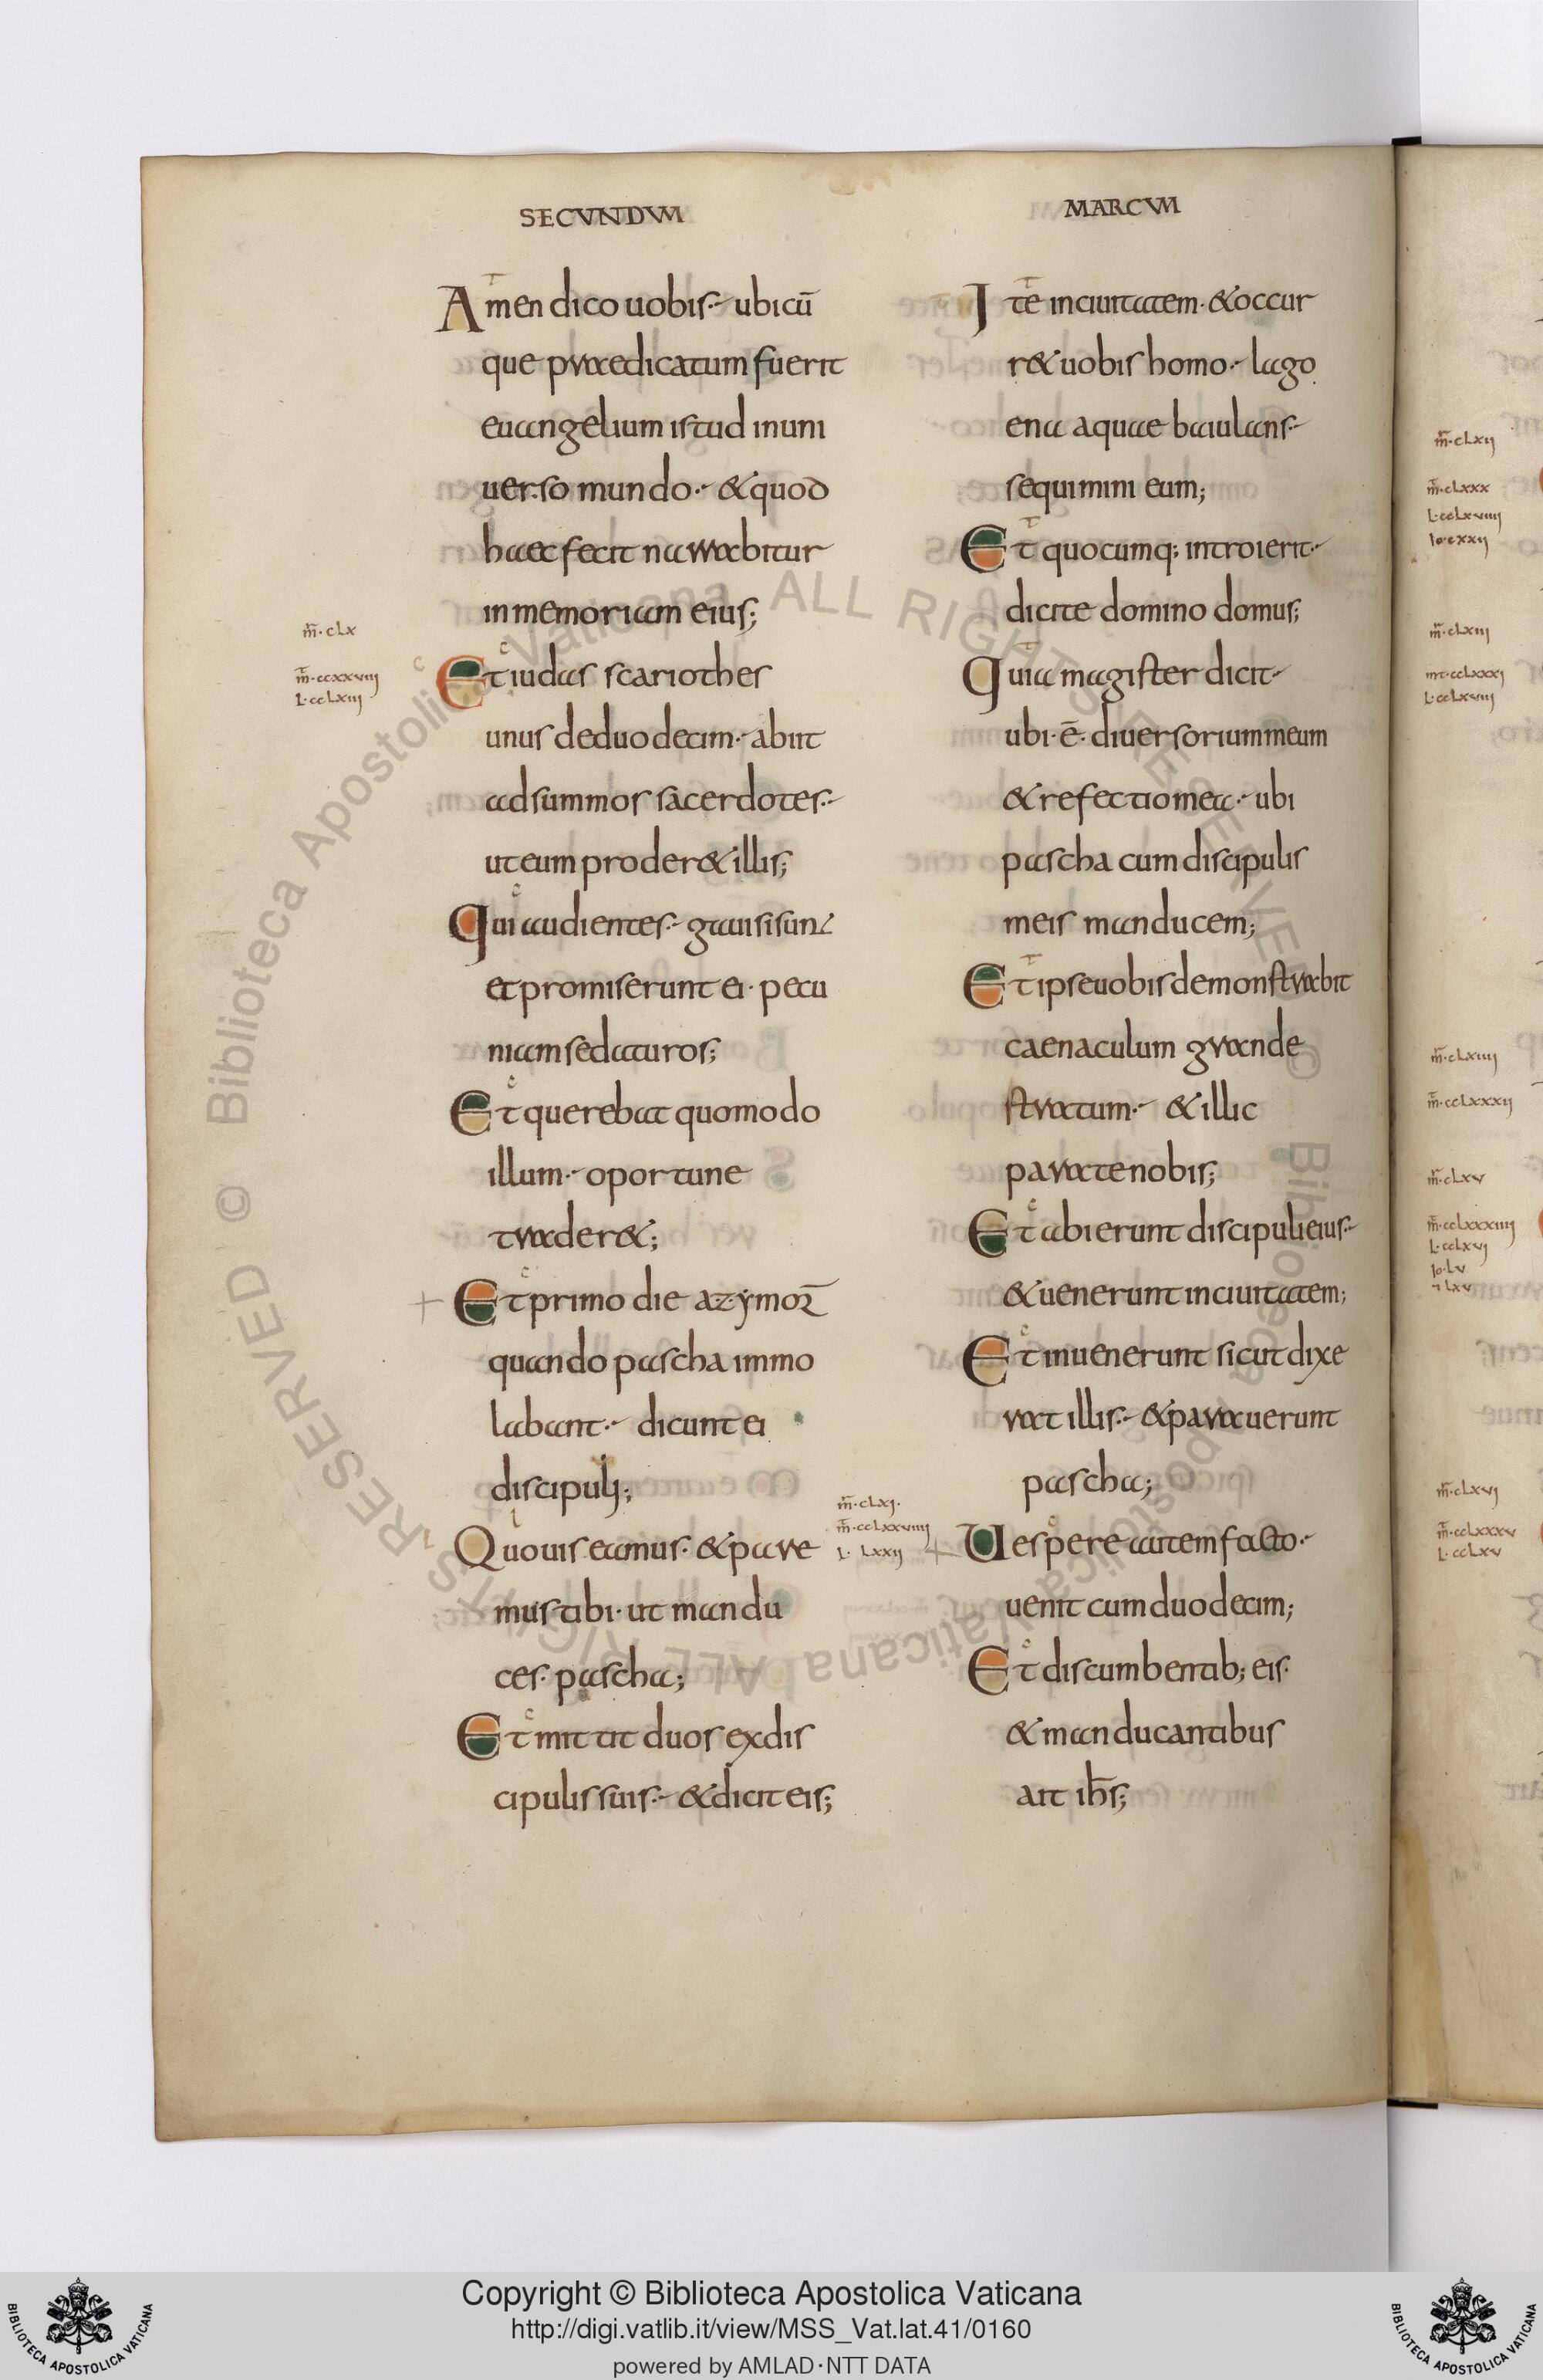 SECVNDVM
Amen dico uobis ubicū
que praedicatum fuerit
euangelium istud inuni
uerso mundo & quod
haec fecit narrabitur
in memoriam eius;
m̄ clx
m̄ ccxxviiij
L cclxiij
Et iudas scariothes
unus deduodecim abiit
ad summos sacerdotes
ut eum proder& illis;
Qui audientes gauisi sunt
et promiserunt ei pecu
niam sedaturos;
Et querebat quomodo
illum oportune
trader&;
Et primo die azymoꝝ
quando pascha immo
labant dicunt ei
discipuli;
Quo uis eamus & pare
mus tibi ut mandu
ces pascha;
Et mittit duos exdis
cipulis suis & dicit eis;
MARCVM
Ite inciuitatem & occur
r& uobis homo lago
ena aquae baiulans
sequimini eum;
Et quocumq; introierit
dicite domino domus;
Quia magister dicit
ubi ē diuersorium meum
& refectio mea ubi
pascha cum discipulis
meis manducem;
Et ipse uobis demonstrabit
caenaculum grande
stratum & illic
parate nobis;
Et abierunt discipuli eius
& uenerunt inciuitatem;
Et inuenerunt sicut dixe
rat illis & parauerunt
pascha;
m̄ clxj
m̄ cclxxviiij
L lxxij
Uespere autem facto
uenit cum duodecim;
Et discumbentib; eis
& manducantibus
ait ihs̄;
m̄ clxij
m̄ clxxx
L cclxviiij
Io cxxij
m̄ clxiij
mt cclxxxj
L cclxviij
m̄ clxiiij
m̄ cclxxxij
m̄ clxv
m̄ cclxxxiiij
L cclxvj
Io lv
lxv
m̄ clxvj
m̄ cclxxxv
L cclxv
© Biblioteca Apostolica Vaticana ALL RIGHTS RESERVED
© Biblioteca Apostolica Vaticana ALL RIGHTS RESERVED
BIBLIOTECA APOSTOLICA VATICANA
Copyright © Biblioteca Apostolica Vaticana
http://digi.vatlib.it/view/MSS_Vat.lat.41/0160
powered by AMLAD·NTT DATA
BIBLIOTECA APOSTOLICA VATICANA